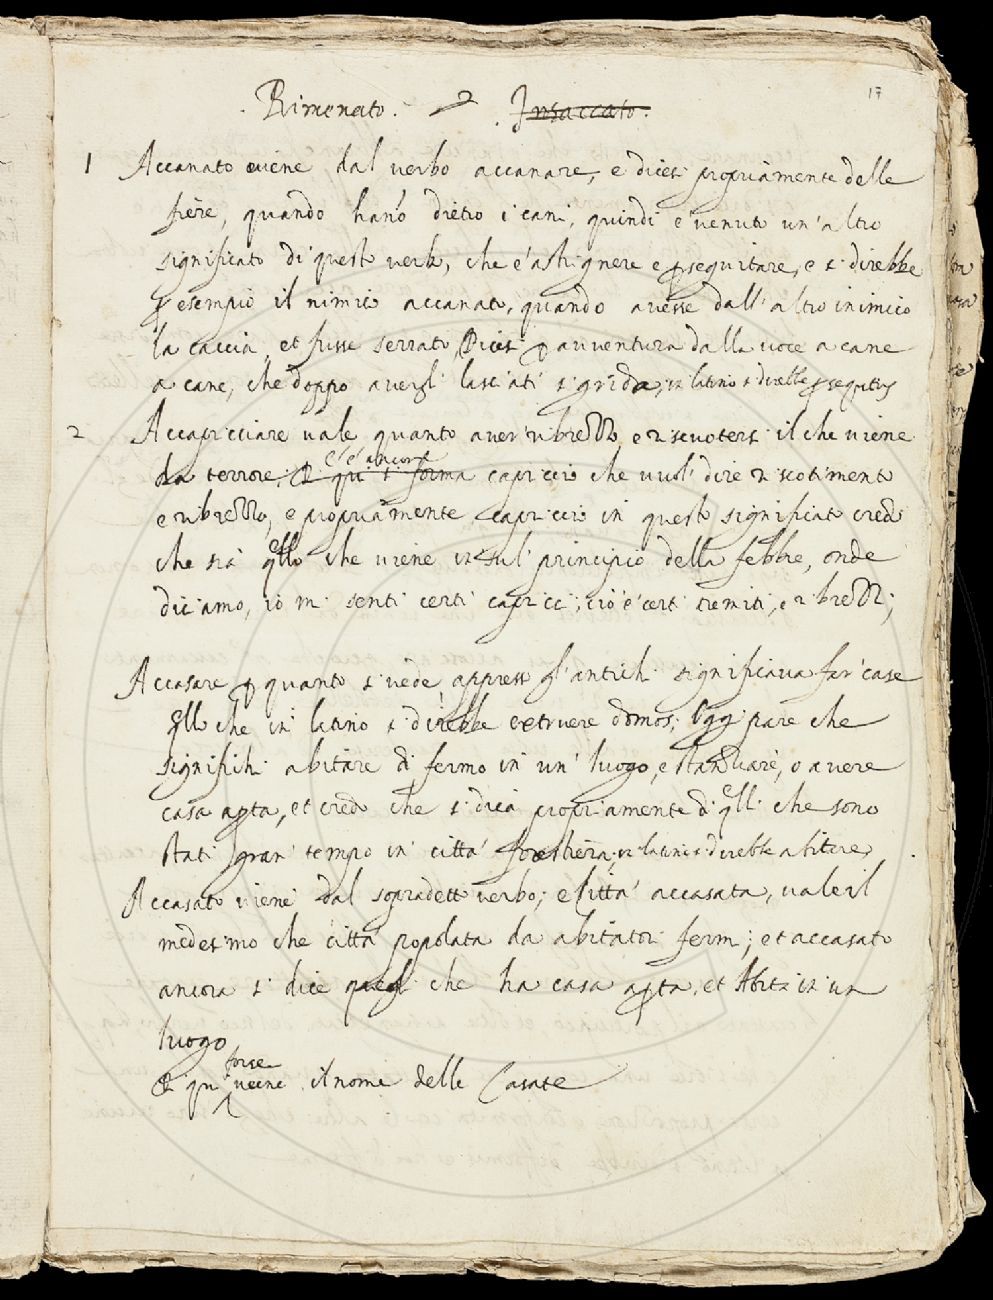 17
Rimenato. 2 Insaccato.
1 Accanato viene dal verbo accanare, e dicesi propriamente delle
fiere, quando hano dietro i cani, quindi è venuto un'altro
significato di questo verbo, che è astrignere e pseguitare, e si direbbe
p esempio il nimico accanato, quando avesse dall'altro inimico
la caccia, et fusse serrato, Dicesi p avventura dalla voce a cane
a cane, che doppo avergli lasciati si grida; in latino si direbbe psequutus
2 Accapricciare vale quanto aver ribrezzo, e riscuotersi il che viene
da terrore. E qui si forma c'è ancora capriccio che vuol dire riscotimento
e ribrezzo, e propriamente capriccio in questo significato credo
che sia qllo che viene in sul principio della febbre, onde
diciamo, io mi sentì certi capricci, cioè certi tremiti, e ribrezzi;
Accasare p quanto si vede appresso gl'antichi significava far case
qllo che in latino si direbbe extruere domos; Oggi pare che
significhi abitare di fermo in un luogo, e stanziare, o avere
casa apta, et credo che si dica propriamente di qlli che sono
stati gran tempo in città forestiera, in latino si direbbe abitare.
Accasato viene dal sopradetto verbo; e Città accasata, vale il
medesimo che città popolata da abitatori fermi; et accasato
ancora si dice quegli che ha casa apta, et Abita in un
luogo
E qui forse viene il nome delle Casate